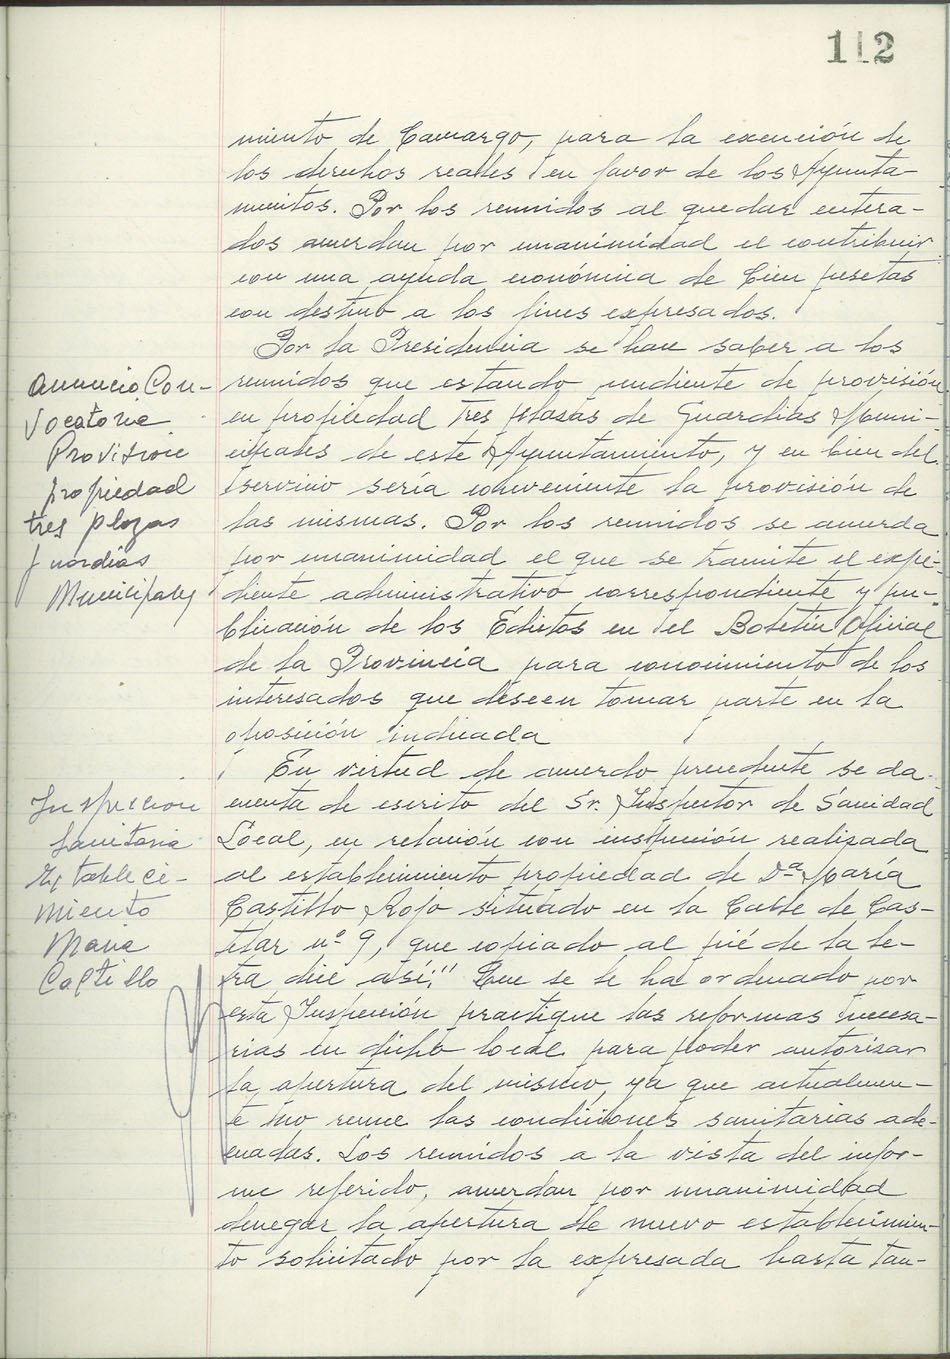 112
miento de Camargo, para la exención de
los derechos reales en favor de los Ayunta-
mientos. Por los reunidos al quedar entera-
dos acuerdan por unanimidad el contribuir
con una ayuda económica de Cien pesetas
con destino a los fines expresados.
Por la Presidencia se hace saber a los
reunidos que estando pendiente de provisión
en propiedad tres plazas de Guardias Muni-
cipales de este Ayuntamiento, y en bien del
servicio sería conveniente la provisión de
las mismas. Por los reunidos se acuerda
por unanimidad el que se tramite el expe-
diente administrativo correspondiente y pu-
blicación de los Edictos en el Boletín Oficial
de la Provincia para conocimiento de los
interesados que deseen tomar parte en la
oposición indicada
Anuncio Con-
vocatoria
Provisión
propiedad
tres plazas
guardias
Municipales
En virtud de acuerdo precedente se da
cuenta de escrito del Sr. Inspector de Sanidad
Local, en relación con inspección realizada
al establecimiento propiedad de Dª María
Castillo Rojo situado en la Calle de Cas-
telar nº 9, que copiado al pié de la le-
tra dice así:" Que se le ha ordenado por
esta Inspección practique las reformas necesa-
rias en dicho local para poder autorizar
la apertura del mismo, ya que actualmen-
te no reune las condiciones sanitarias ade-
cuadas. Los reunidos a la vista del infor-
me referido, acuerdan por unanimidad
denegar la apertura de nuevo establecimien-
to solicitado por la expresada hasta tan-
Inspeccion
Sanitaria
Estableci-
miento
Maria
Castillo